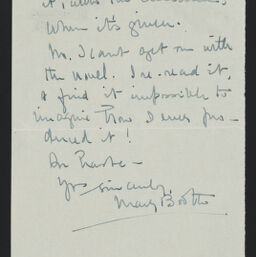 when it's given.
No. I can't get on with
the novel. I re-read it,
& find it impossible to
imagine how I ever pro-
duced it!
In haste –
Yrs sincerely,
Mary